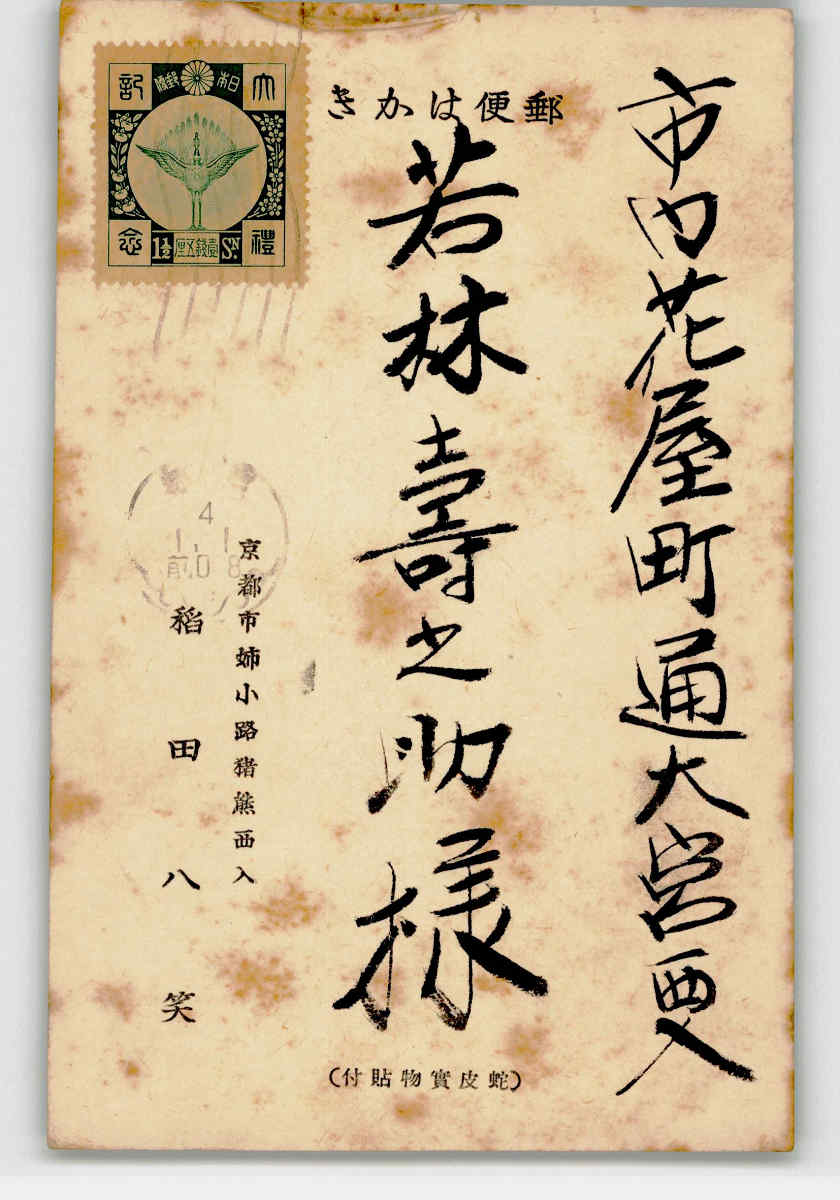 郵便はかき
市内花屋町通大宮西入
若林壽之助様
京都市姉小路猪熊西入
稻田八笑
(蛇皮實物貼付)
大禮記念
日本郵便
1½ 壹錢五厘 SN.
4
1.1
前0 8